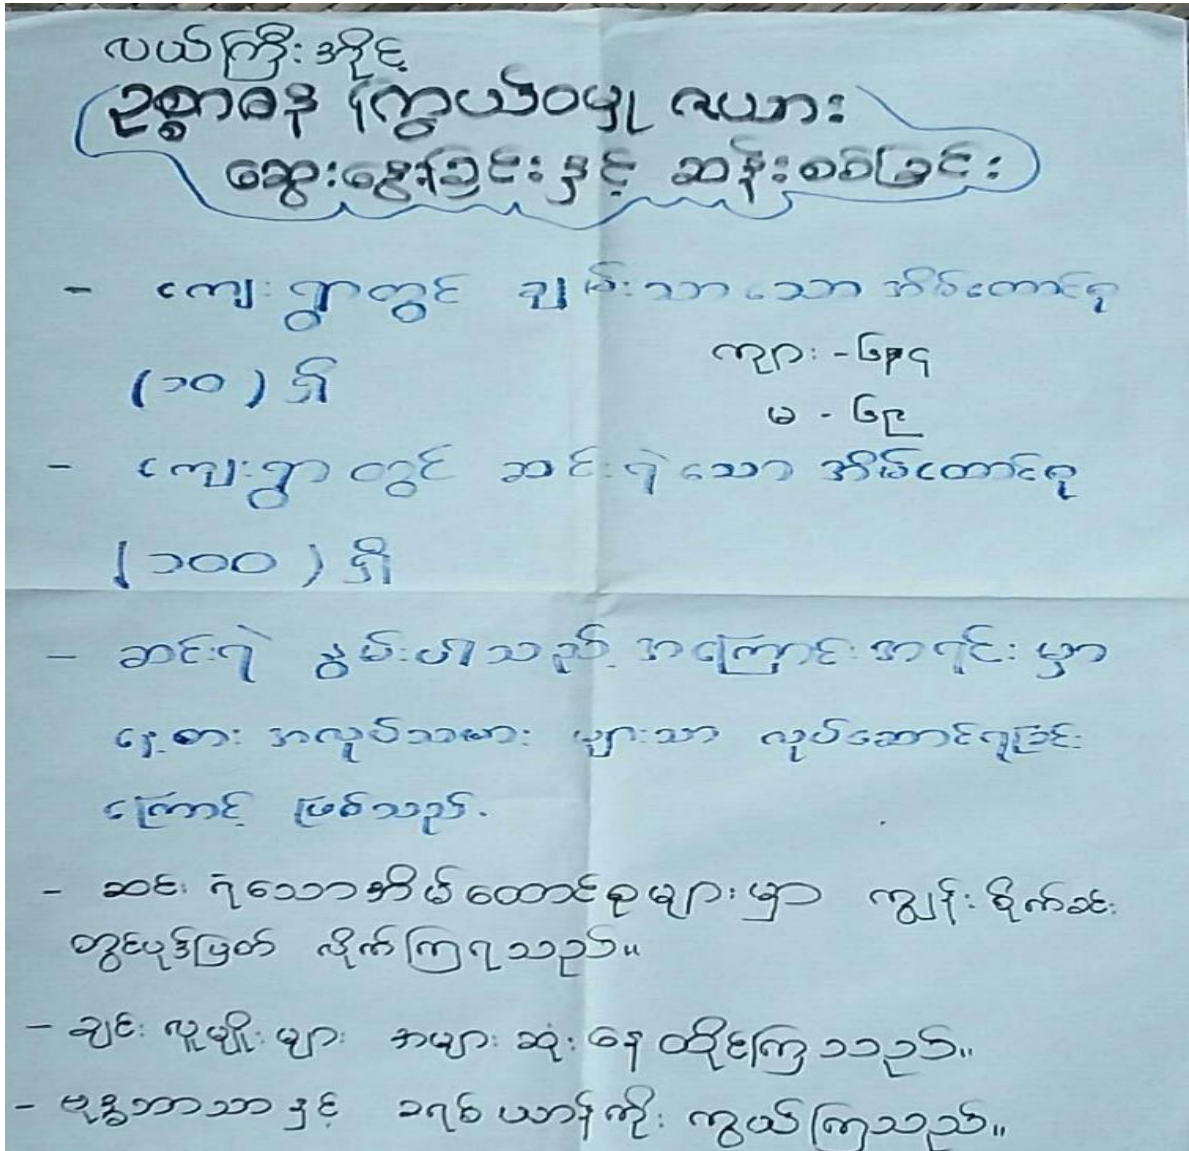 လယ်ကြီးအိုင့်
ဥစ္စာဓန ကြွယ်ဝမှု ဇယား
ဆွေးနွေးခြင်းနှင့် ဆန်းစစ်ခြင်း
- ကျေးရွာတွင် ချမ်းသာသော အိမ်ထောင်စု
(၁၀) ရှိ
ကျား - ၆၈၄
မ - ၆၉
- ကျေးရွာတွင် ဆင်းရဲသော အိမ်ထောင်စု
(၁၀၀) ရှိ
- ဆင်းရဲ နွမ်းပါးသည့် အကြောင်းအရင်းမှာ
နေ့စား အလုပ်သမား များသာ လုပ်ဆောင်ရခြင်း
ကြောင့် ဖြစ်သည်.
- ဆင်းရဲသောအိမ်ထောင်စုများမှာ ကျွန်းစိုက်ခင်း
တွင်ပုဒ်ဖြတ် လိုက်ကြရသည်။
- ချင်းလူမျိုးများ အများဆုံးနေထိုင်ကြသည်။
- ဗုဒ္ဓဘာသာနှင့် ခရစ်ယာန်ကိုး ကွယ်ကြသည်။